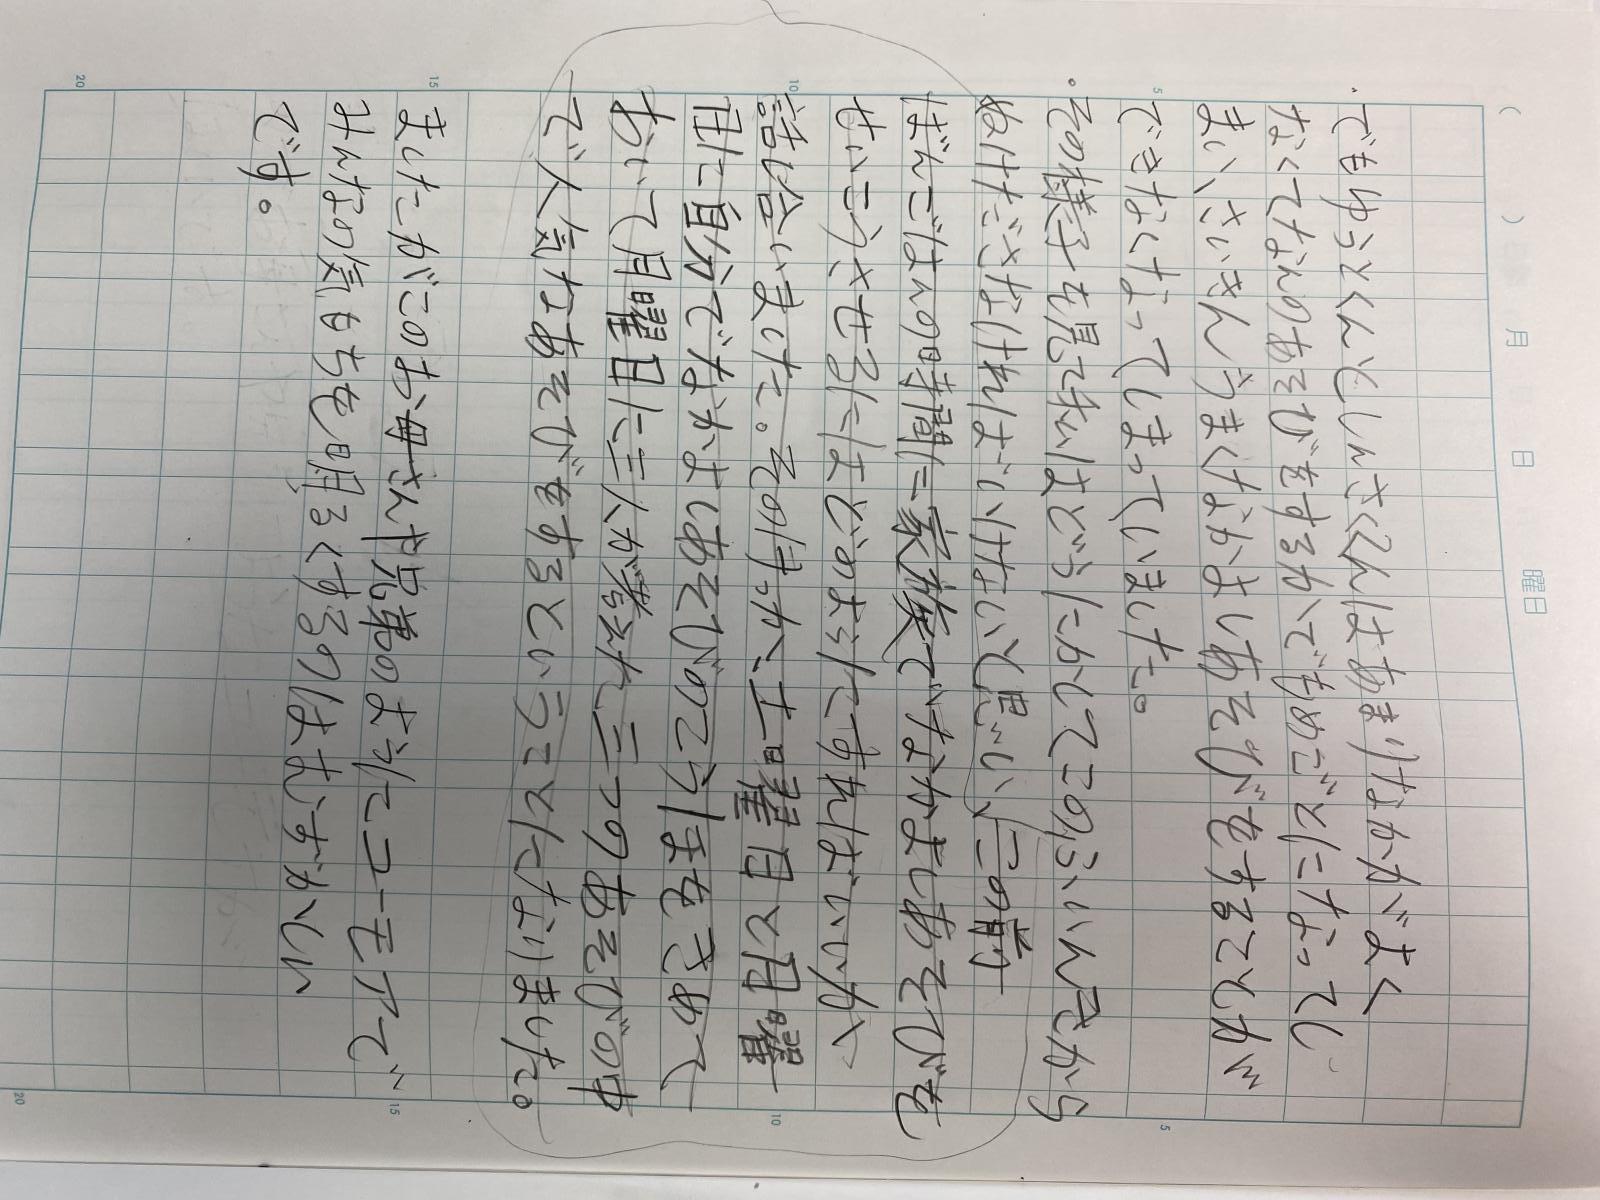 ( ) 月 日 曜日
でもゆうとくんとしんさくくんはあまりなかがよく
なくてなんのあそびをするかでもめごとになってし
まい、さいきんうまくなかよしあそびをすることが
できなくなってしまっていました。
その様子を見て私はどうにかしてこのふんいきから
ぬけださなければいけないと思い、
ばんごはんの時間に家族でなかよしあそびを
せいこうさせるにはどのようにすればいいか
話し合いました。そのけっか、土曜日と日曜
日に自分でなかよしあそびのこうほをきめて
おいて月曜日に三人が考えた三つのあそびの中
で人気なあそびをするということになりました。
ましたがこのお母さんや兄弟のようにユーモアで
みんなの気もちを明るくするのはむずかしい
です。
5
10
15
20
5
10
15
20